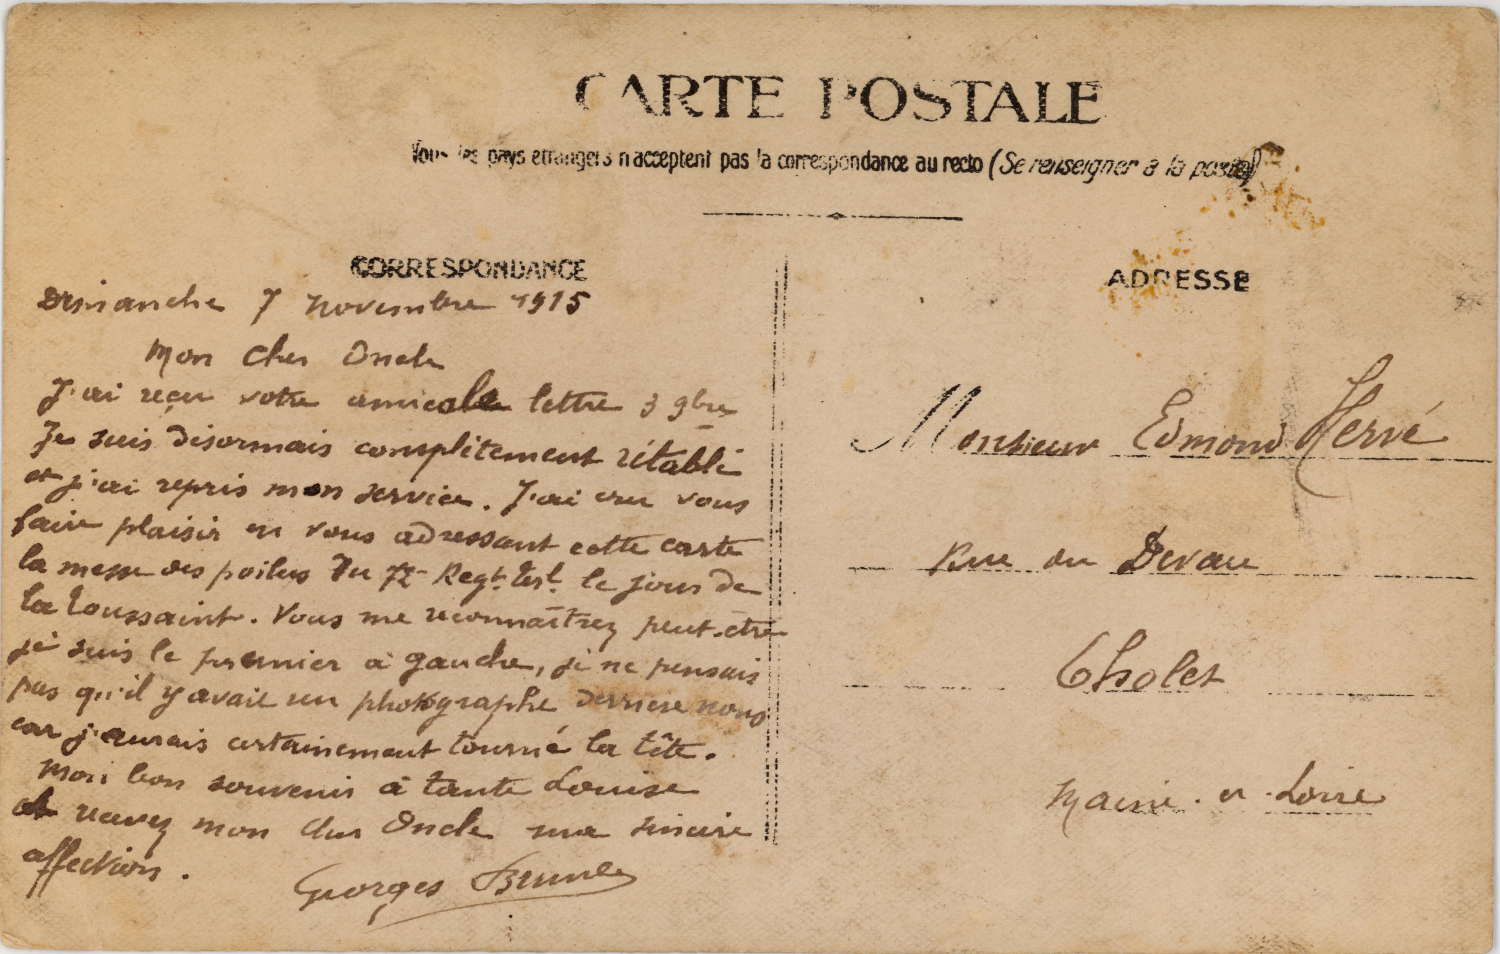 CARTE POSTALE
Tous les pays étrangers n'acceptent pas la correspondance au recto (Se renseigner à la poste)
CORRESPONDANCE
Dimanche 7 Novembre 1915
Mon Cher Oncle
J'ai reçu votre amicale lettre 3 9bre
Je suis désormais complètement rétabli
et j'ai repris mon service. J'ai cru vous
faire plaisir en vous adressant cette carte
la messe des poilus du 72e Regt. Terl. le jour de
la Toussaint. Vous me reconnaîtrez peut-être
je suis le premier à gauche, je ne pensais
pas qu'il y avait un photographe derrière nous
car j'aurais certainement tourné la tête.
Mon bon souvenir à tante Louise
et recevez mon cher Oncle ma sincère
affection.
Georges
ADRESSE
Monsieur Edmond Hervé
Rue du Devau
Cholet
Maine-et-Loire